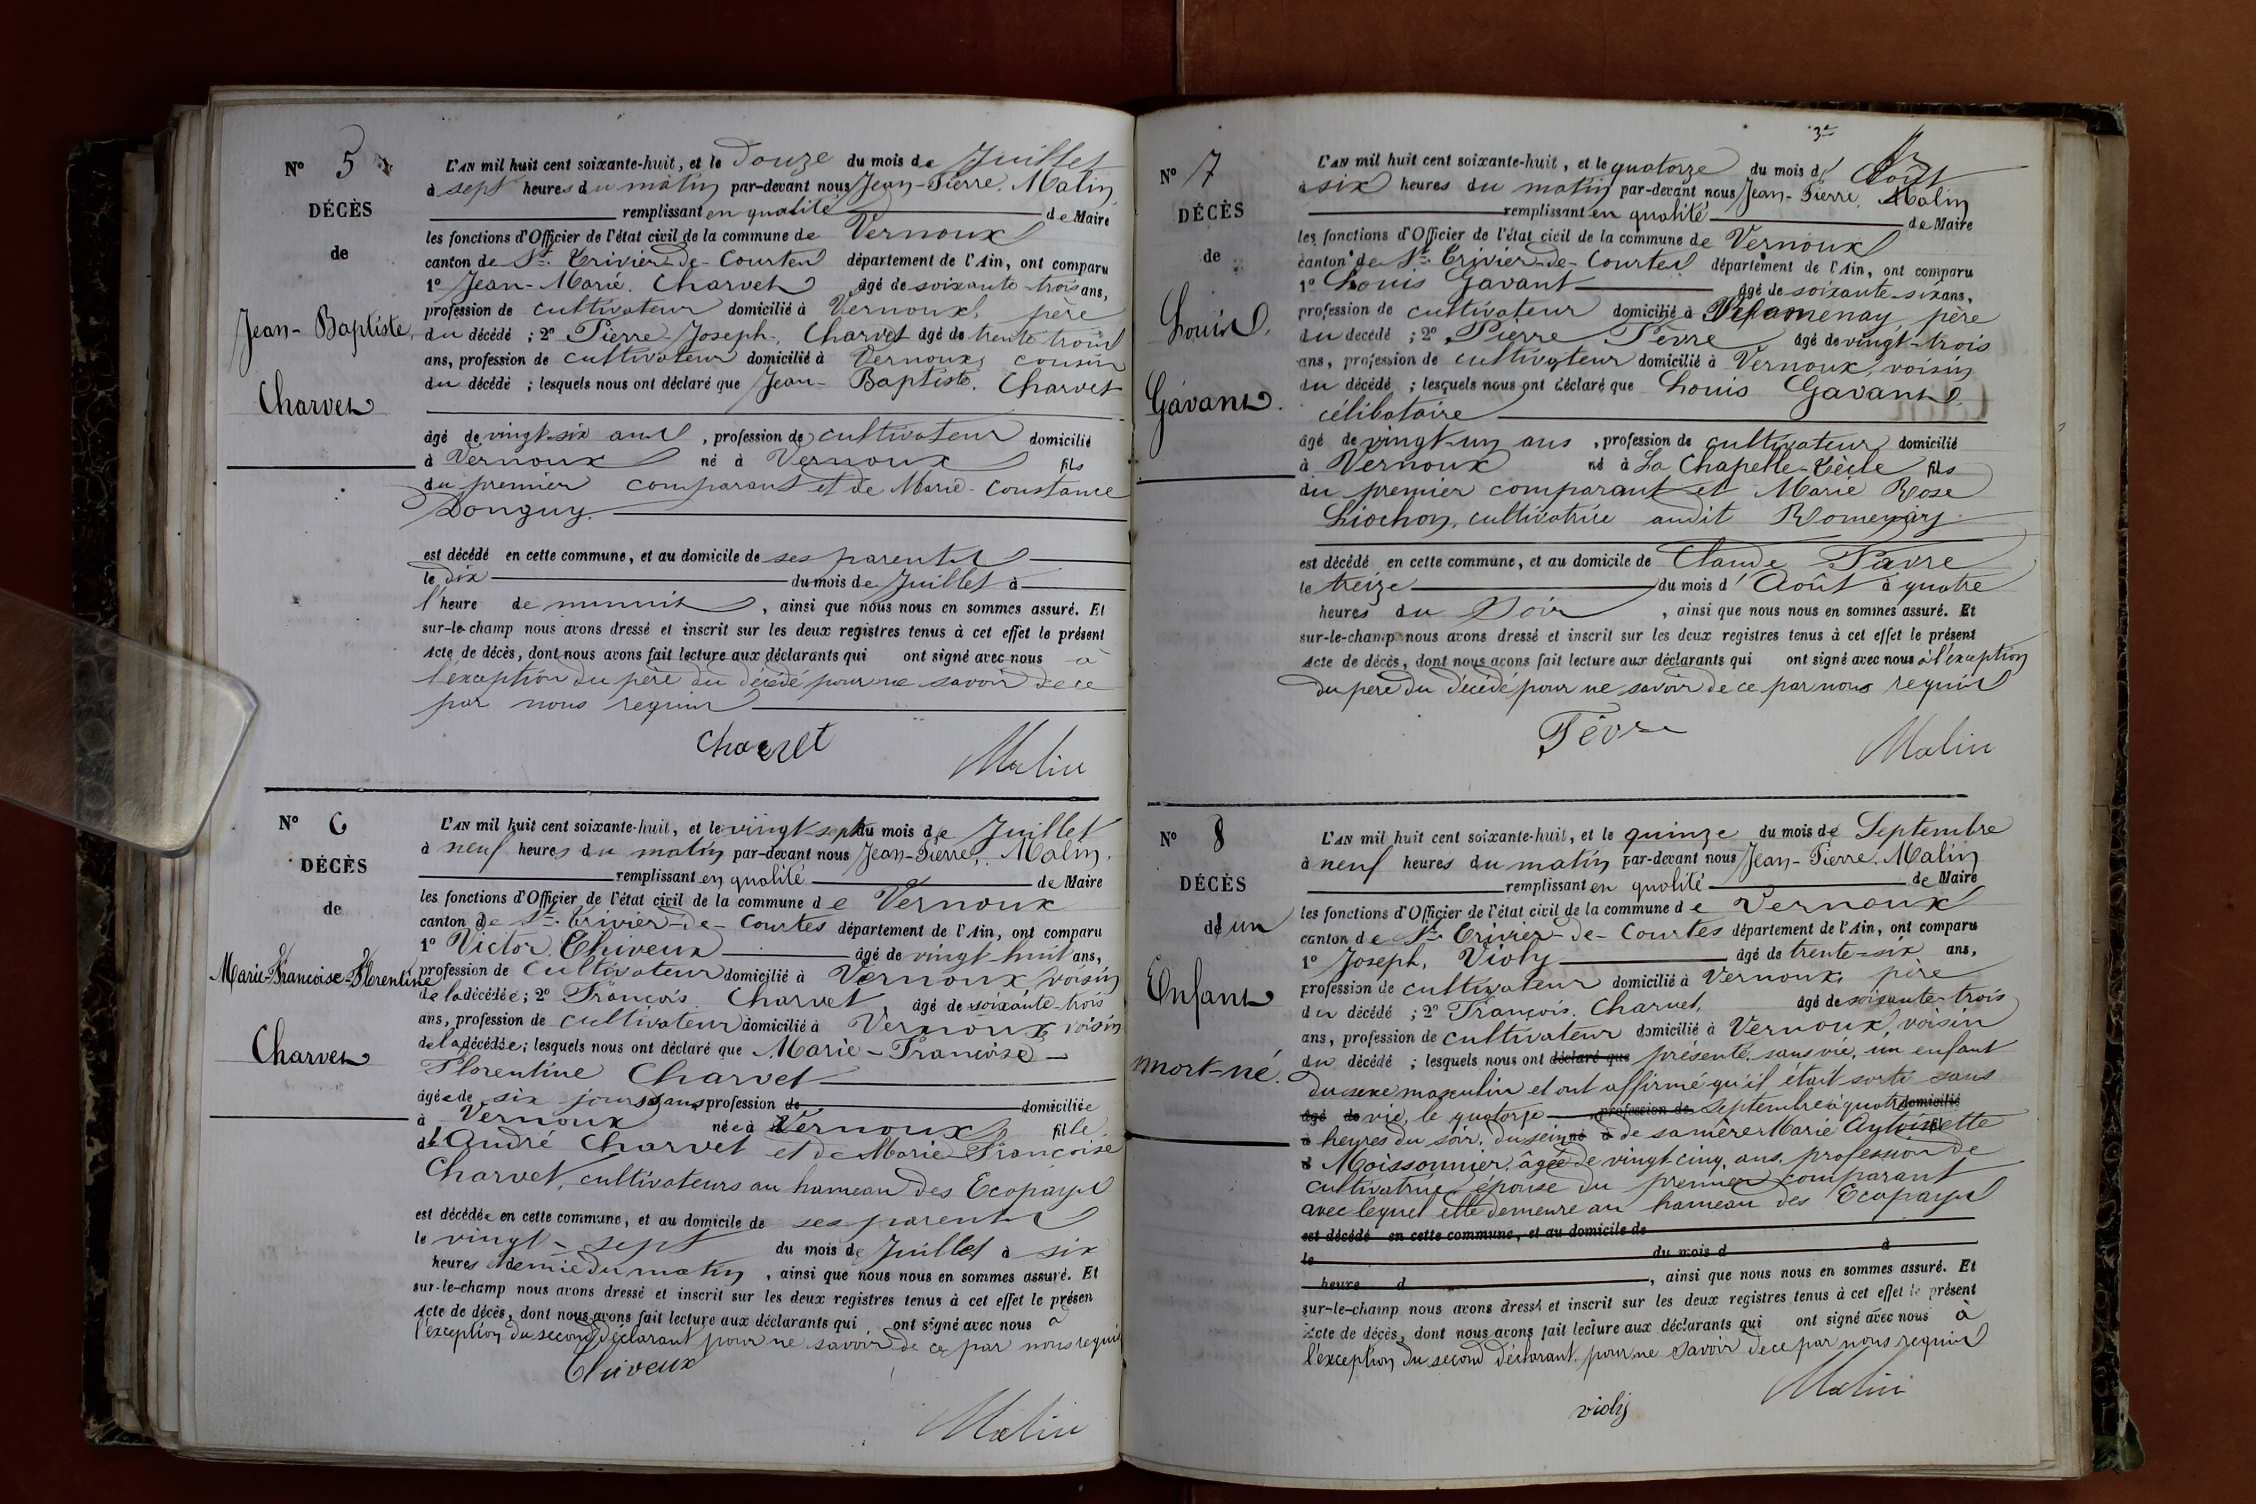 N° 5
DÉCÈS
de
Jean-Baptiste
Charvet
L'AN mil huit cent soixante-huit, et le Douze du mois de Juillet
à sept heures du matin par-devant nous Jean-Pierre. Malin
remplissant en qualité de Maire
les fonctions d'Officier de l'état civil de la commune de Vernoux
canton de St. Trivier-de-Courtes département de l'Ain, ont comparu
1° Jean-Marie. Charvet âgé de soixante-trois ans,
profession de cultivateur domicilié à Vernoux, père
du décédé ; 2° Pierre-Joseph, Charvet âgé de trente-trois
ans, profession de cultivateur domicilié à Vernoux, cousin
du décédé ; lesquels nous ont déclaré que Jean-Baptiste, Charvet
âgé de vingt-six ans, profession de cultivateur domicilié
à Vernoux né à Vernoux fils
du premier comparant et de Marie-Constance
Donguy.
est décédé en cette commune, et au domicile de ses parents
le dix du mois de Juillet à
l'heure de minuit, ainsi que nous nous en sommes assuré. Et
sur-le-champ nous avons dressé et inscrit sur les deux registres tenus à cet effet le présent
Acte de décès, dont nous avons fait lecture aux déclarants qui ont signé avec nous à
l'exception du père du décédé pour ne savoir de ce
par nous requis
Charvet
Malin
N° 6
DÉCÈS
de
Marie-Françoise-Florentine
Charvet
L'AN mil huit cent soixante-huit, et le vingt sept du mois de Juillet
à neuf heures du matin par-devant nous Jean-Pierre, Malin.
remplissant en qualité de Maire
les fonctions d'Officier de l'état civil de la commune de Vernoux
canton de St. Trivier-de-Courtes département de l'Ain, ont comparu
1° Victor, Thiveux âgé de vingt huit ans,
profession de cultivateur domicilié à Vernoux, voisin
de la décédée ; 2° François. Charvet âgé de soixante-trois
ans, profession de cultivateur domicilié à Vernoux, voisin
de la décédée ; lesquels nous ont déclaré que Marie-Françoise-
Florentine Charvet
âgée de six jours, sans profession de domiciliée
à Vernoux née à Vernoux fille
d'André Charvet et de Marie Françoise
Charvet, cultivateurs au hameau des Ecopays
est décédée en cette commune, et au domicile de ses parents
le vingt-sept du mois de Juillet à six
heures et demie du matin, ainsi que nous nous en sommes assuré. Et
sur-le-champ nous avons dressé et inscrit sur les deux registres tenus à cet effet le présen
Acte de décès, dont nous avons fait lecture aux déclarants qui ont signé avec nous à
l'exception du second déclarant pour ne savoir de ce par nous requis
Thiveux
Malin
3e
N° 7
DÉCÈS
de
Louis
Gavant.
L'AN mil huit cent soixante-huit, et le quatorze du mois d'Août
à six heures du matin par-devant nous Jean-Pierre. Malin
remplissant en qualité de Maire
les fonctions d'Officier de l'état civil de la commune de Vernoux
canton de St. Trivier-de-Courtes département de l'Ain, ont comparu
1° Louis Gavant âgé de soixante-six ans,
profession de cultivateur domicilié à Romenay, père
du décédé ; 2° Pierre Fèvre, âgé de vingt-trois
ans, profession de cultivateur domicilié à Vernoux, voisin
du décédé ; lesquels nous ont déclaré que Louis Gavant,
célibataire
âgé de vingt-un ans, profession de cultivateur domicilié
à Vernoux né à La Chapelle-Tècle fils
du premier comparant et Marie Rose
Liochon, cultivatrice audit Romenay
est décédé en cette commune, et au domicile de Claude Favre
le treize du mois d'Août à quatre
heures du soir, ainsi que nous nous en sommes assuré. Et
sur-le-champ nous avons dressé et inscrit sur les deux registres tenus à cet effet le présent
Acte de décès, dont nous avons fait lecture aux déclarants qui ont signé avec nous à l'exception
du père du décédé pour ne savoir de ce par nous requis
Fèvre
Malin
N° 8
DÉCÈS
d'un
Enfant
mort-né.
L'AN mil huit cent soixante-huit, et le quinze du mois de Septembre
à neuf heures du matin par-devant nous Jean-Pierre. Malin
remplissant en qualité de Maire
les fonctions d'Officier de l'état civil de la commune de Vernoux
canton de St. Trivier-de-Courtes département de l'Ain, ont comparu
1° Joseph, Violy âgé de trente-six ans,
profession de cultivateur domicilié à Vernoux, père
du décédé ; 2° François. Charvet, âgé de soixante-trois
ans, profession de cultivateur domicilié à Vernoux, voisin
du décédé ; lesquels nous ont déclaré que présenté, sans vie, un enfant
du sexe masculin et ont affirmé qu'il était sorti sans
âgé de vie, le quatorze profession de septembre à quatre domicilié
à heures du soir, du sein né à de sa mère Marie Antoinette
Moissonnier, âgée de vingt-cinq, ans, profession de
cultivatrice épouse du premier comparant
avec lequel elle demeure au hameau des Ecopays
est décédé en cette commune, et au domicile de
le du mois d à
heure d , ainsi que nous nous en sommes assuré. Et
sur-le-champ nous avons dressé et inscrit sur les deux registres tenus à cet effet le présent
Acte de décès, dont nous avons fait lecture aux déclarants qui ont signé avec nous à
l'exception du second déclarant, pour ne savoir de ce par nous requis
Malin
violy